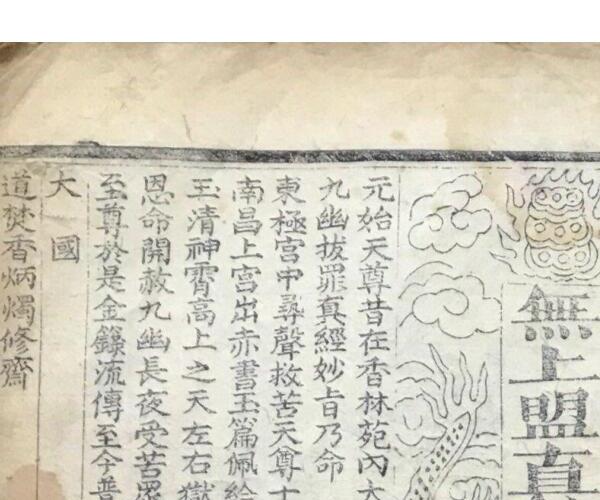 無上盟真
元始天尊昔在香林苑內大
九幽拔罪真經妙旨乃命
東極宮中尋聲救苦天尊十
南昌上宮出赤書玉篇佩給
玉清神霄高上之天左右獄
恩命開赦九幽長夜受苦眾
至尊於是金籙流傳至今普
大國
道焚香炳燭修齋